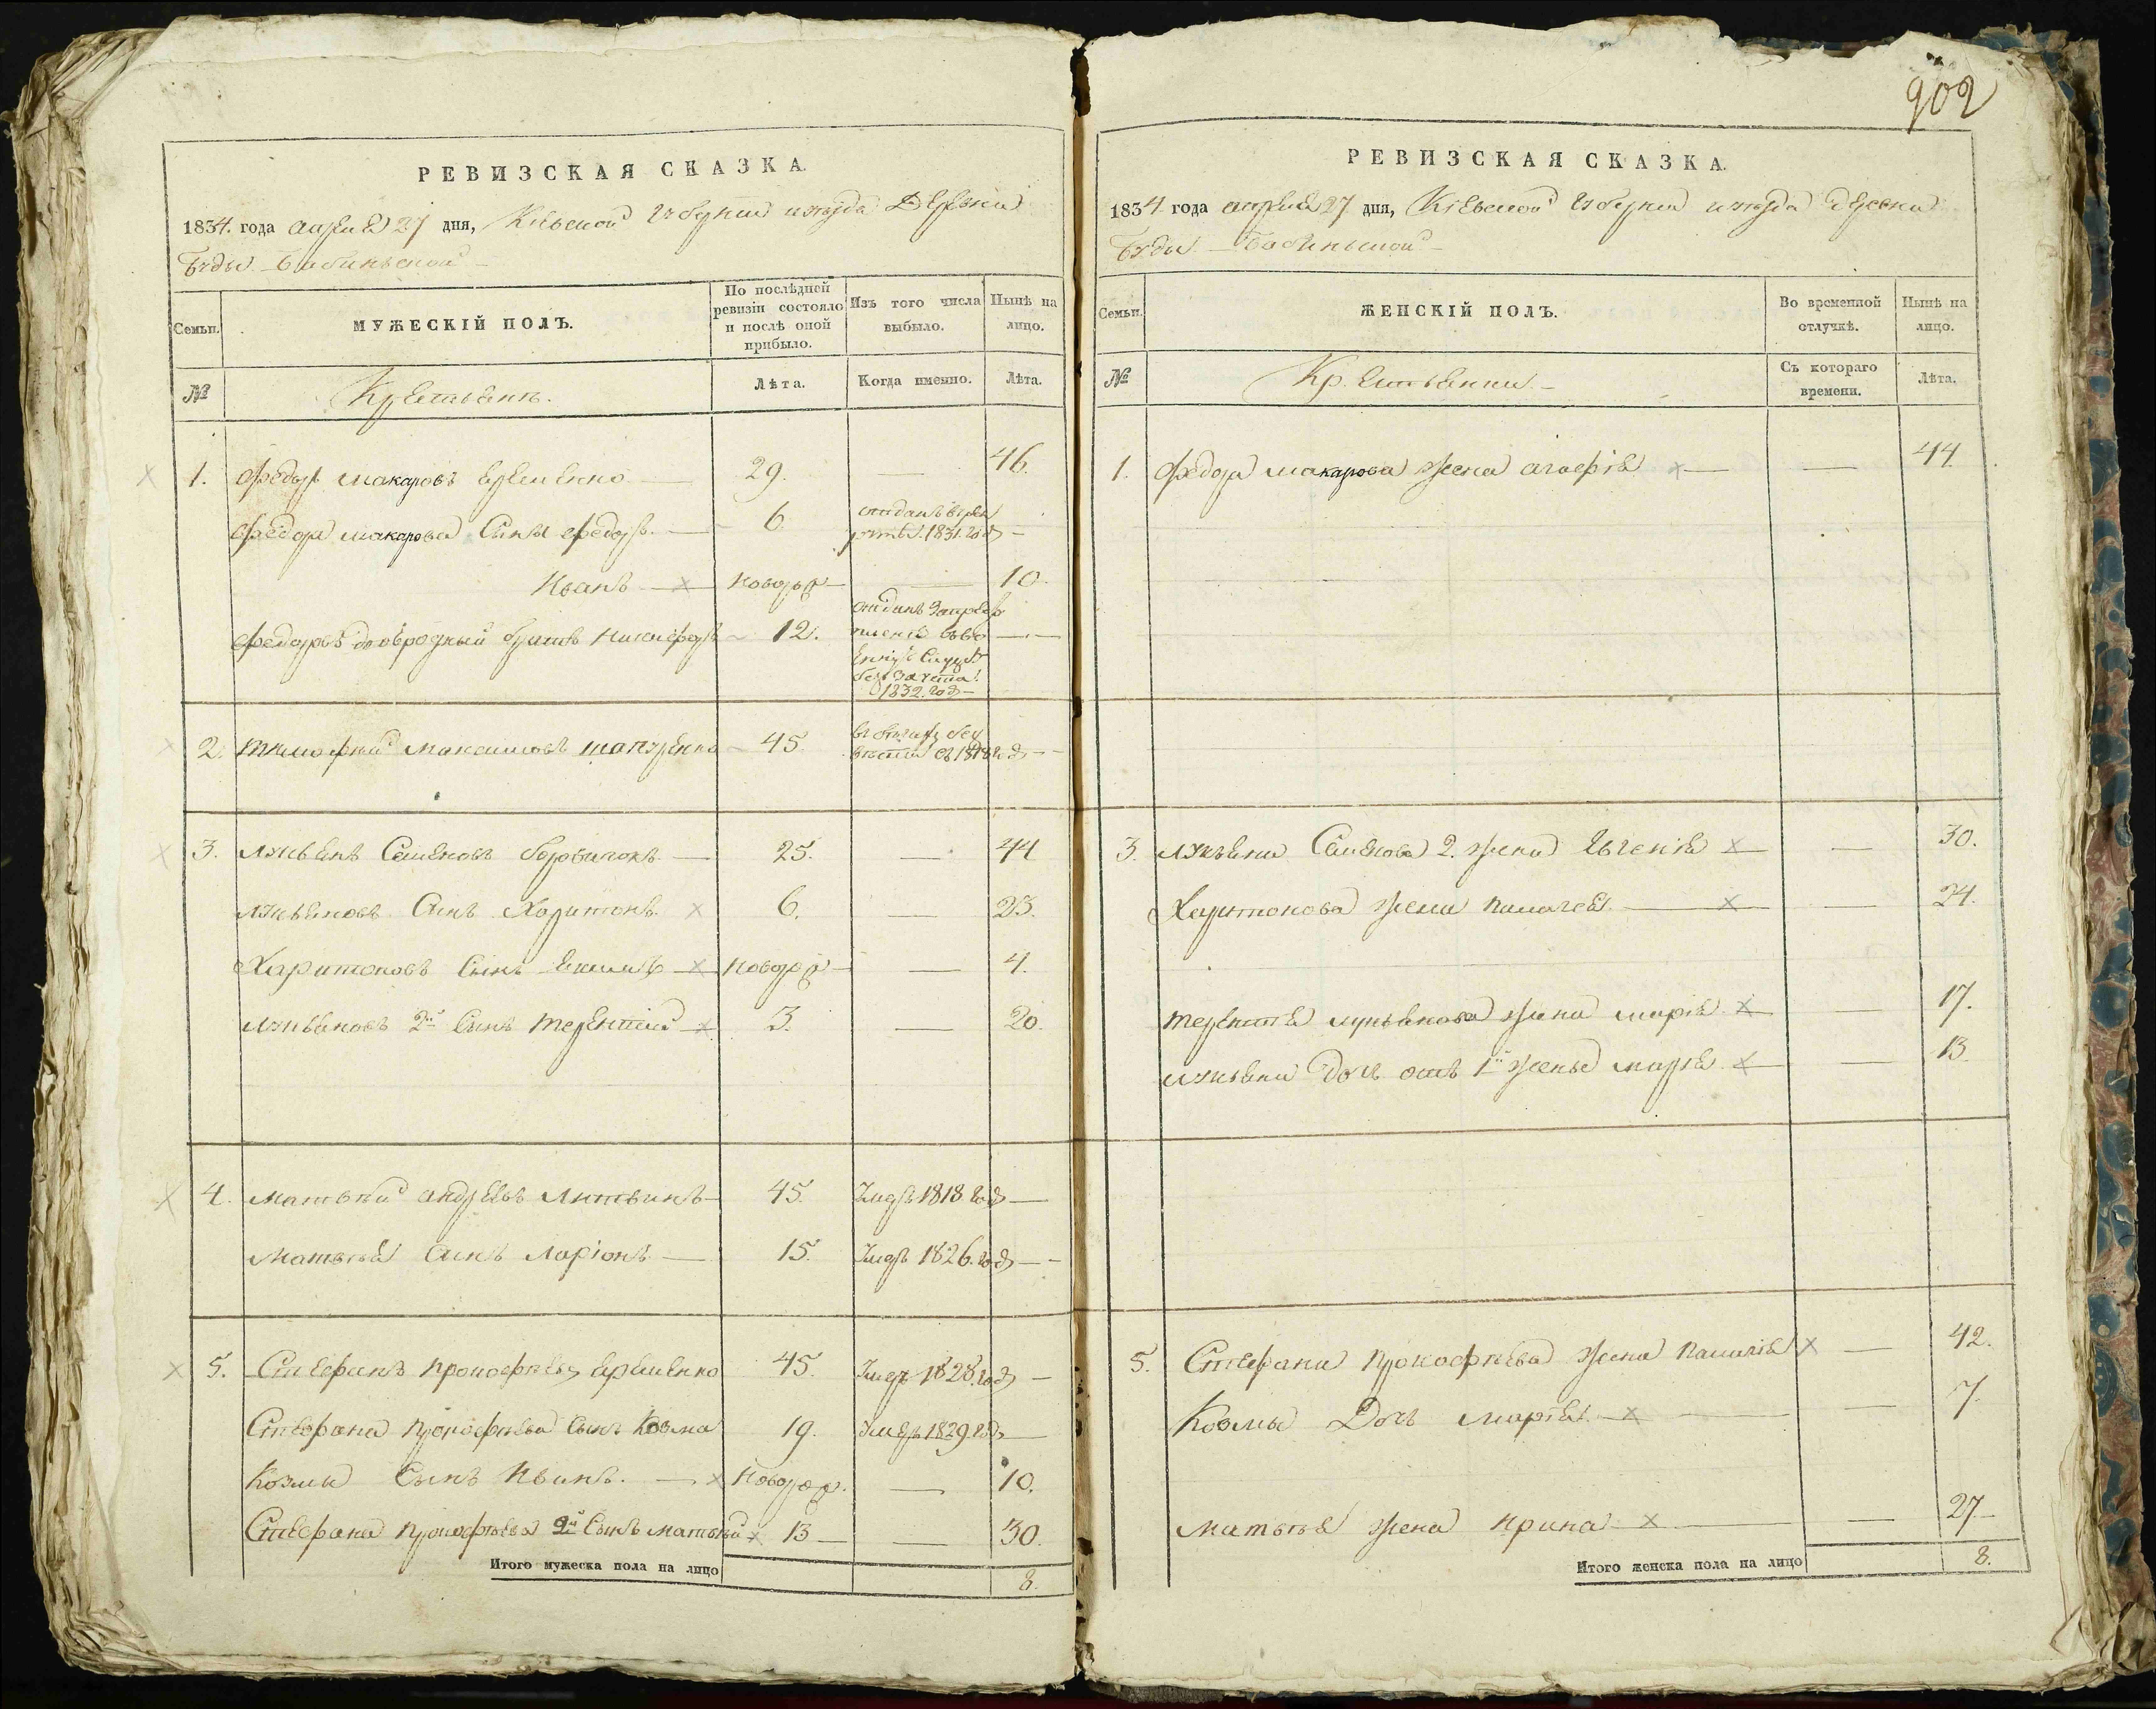 902
РЕВИЗСКАЯ СКАЗКА.
1834. года апреля 27 дня, Кіевской губерніи и уезда Деревни
Буды Бабинской
Семьи.
МУЖЕСКІЙ ПОЛЪ.
По послѣдней ревизіи состояло и послѣ оной прибыло.
Изъ того числа выбыло.
Нынѣ на лицо.
№
Крестьяне.
Лѣта.
Когда именно.
Лѣта.
1. Федоръ Макаровъ Еременко — 29. — 46.
Федора Макарова Сынъ Федоръ. — 6. отданъ въ рекруты. 1831. год —
Иванъ — × новорож — — 10.
Федоровъ двоюродный братъ Никифоръ — 12. отданъ
без зачета
1832. год —
2. Тимофей Максимовъ — 45. в бегах без вести съ 1818 год —
3. Лукьянъ Семеновъ — 25. — 44
Лукьяновъ Сынъ Харитонъ. × 6. — 25.
Харитоновъ Сынъ Екимъ — × новорож — — 4.
Лукьяновъ 2й Сынъ Терентий — × 3. — 20.
4. Матвѣй Андреевъ Литвинъ — 45. Умеръ 1818. год —
Матвѣя Сынъ Ларіонъ — 15. Умеръ 1826. год —
5. Стефанъ Прокофьевъ Еременко 45. Умеръ 1828. год —
Стефана Прокофьева Сынъ Козма 19. Умеръ 1829 год —
Козмы Сынъ Иванъ. — × Новорож. — 10.
Стефана Прокофьева 2й Сынъ Матвѣй × 13 — — 30.
Итого мужеска пола на лицо 8.
РЕВИЗСКАЯ СКАЗКА.
1834. года апреля 27 дня, Кіевской губерніи и уезда деревни
Буды — Бабинской —
Семьи.
ЖЕНСКІЙ ПОЛЪ.
Во временной отлучкѣ.
Нынѣ на лицо.
№
Крестьянки. —
Съ котораго времени.
Лѣта.
1. Федора Макарова жена Агафія × — — 44.
3. Лукьяна Семенова 2. жена Евгенія × — — 30.
Харитонова жена Пелагея. — × — — 24.
Терентія Лукьянова жена Марія × — — 17.
Лукьяна Дочь отъ 1й жены Марія × — — 13.
5. Стефана Прокофьева жена Палагія × — 42.
Козмы Дочь Марія. — × — — 7.
Матвѣя жена Ирина — × — — 27 —
Итого женска пола на лицо 8.